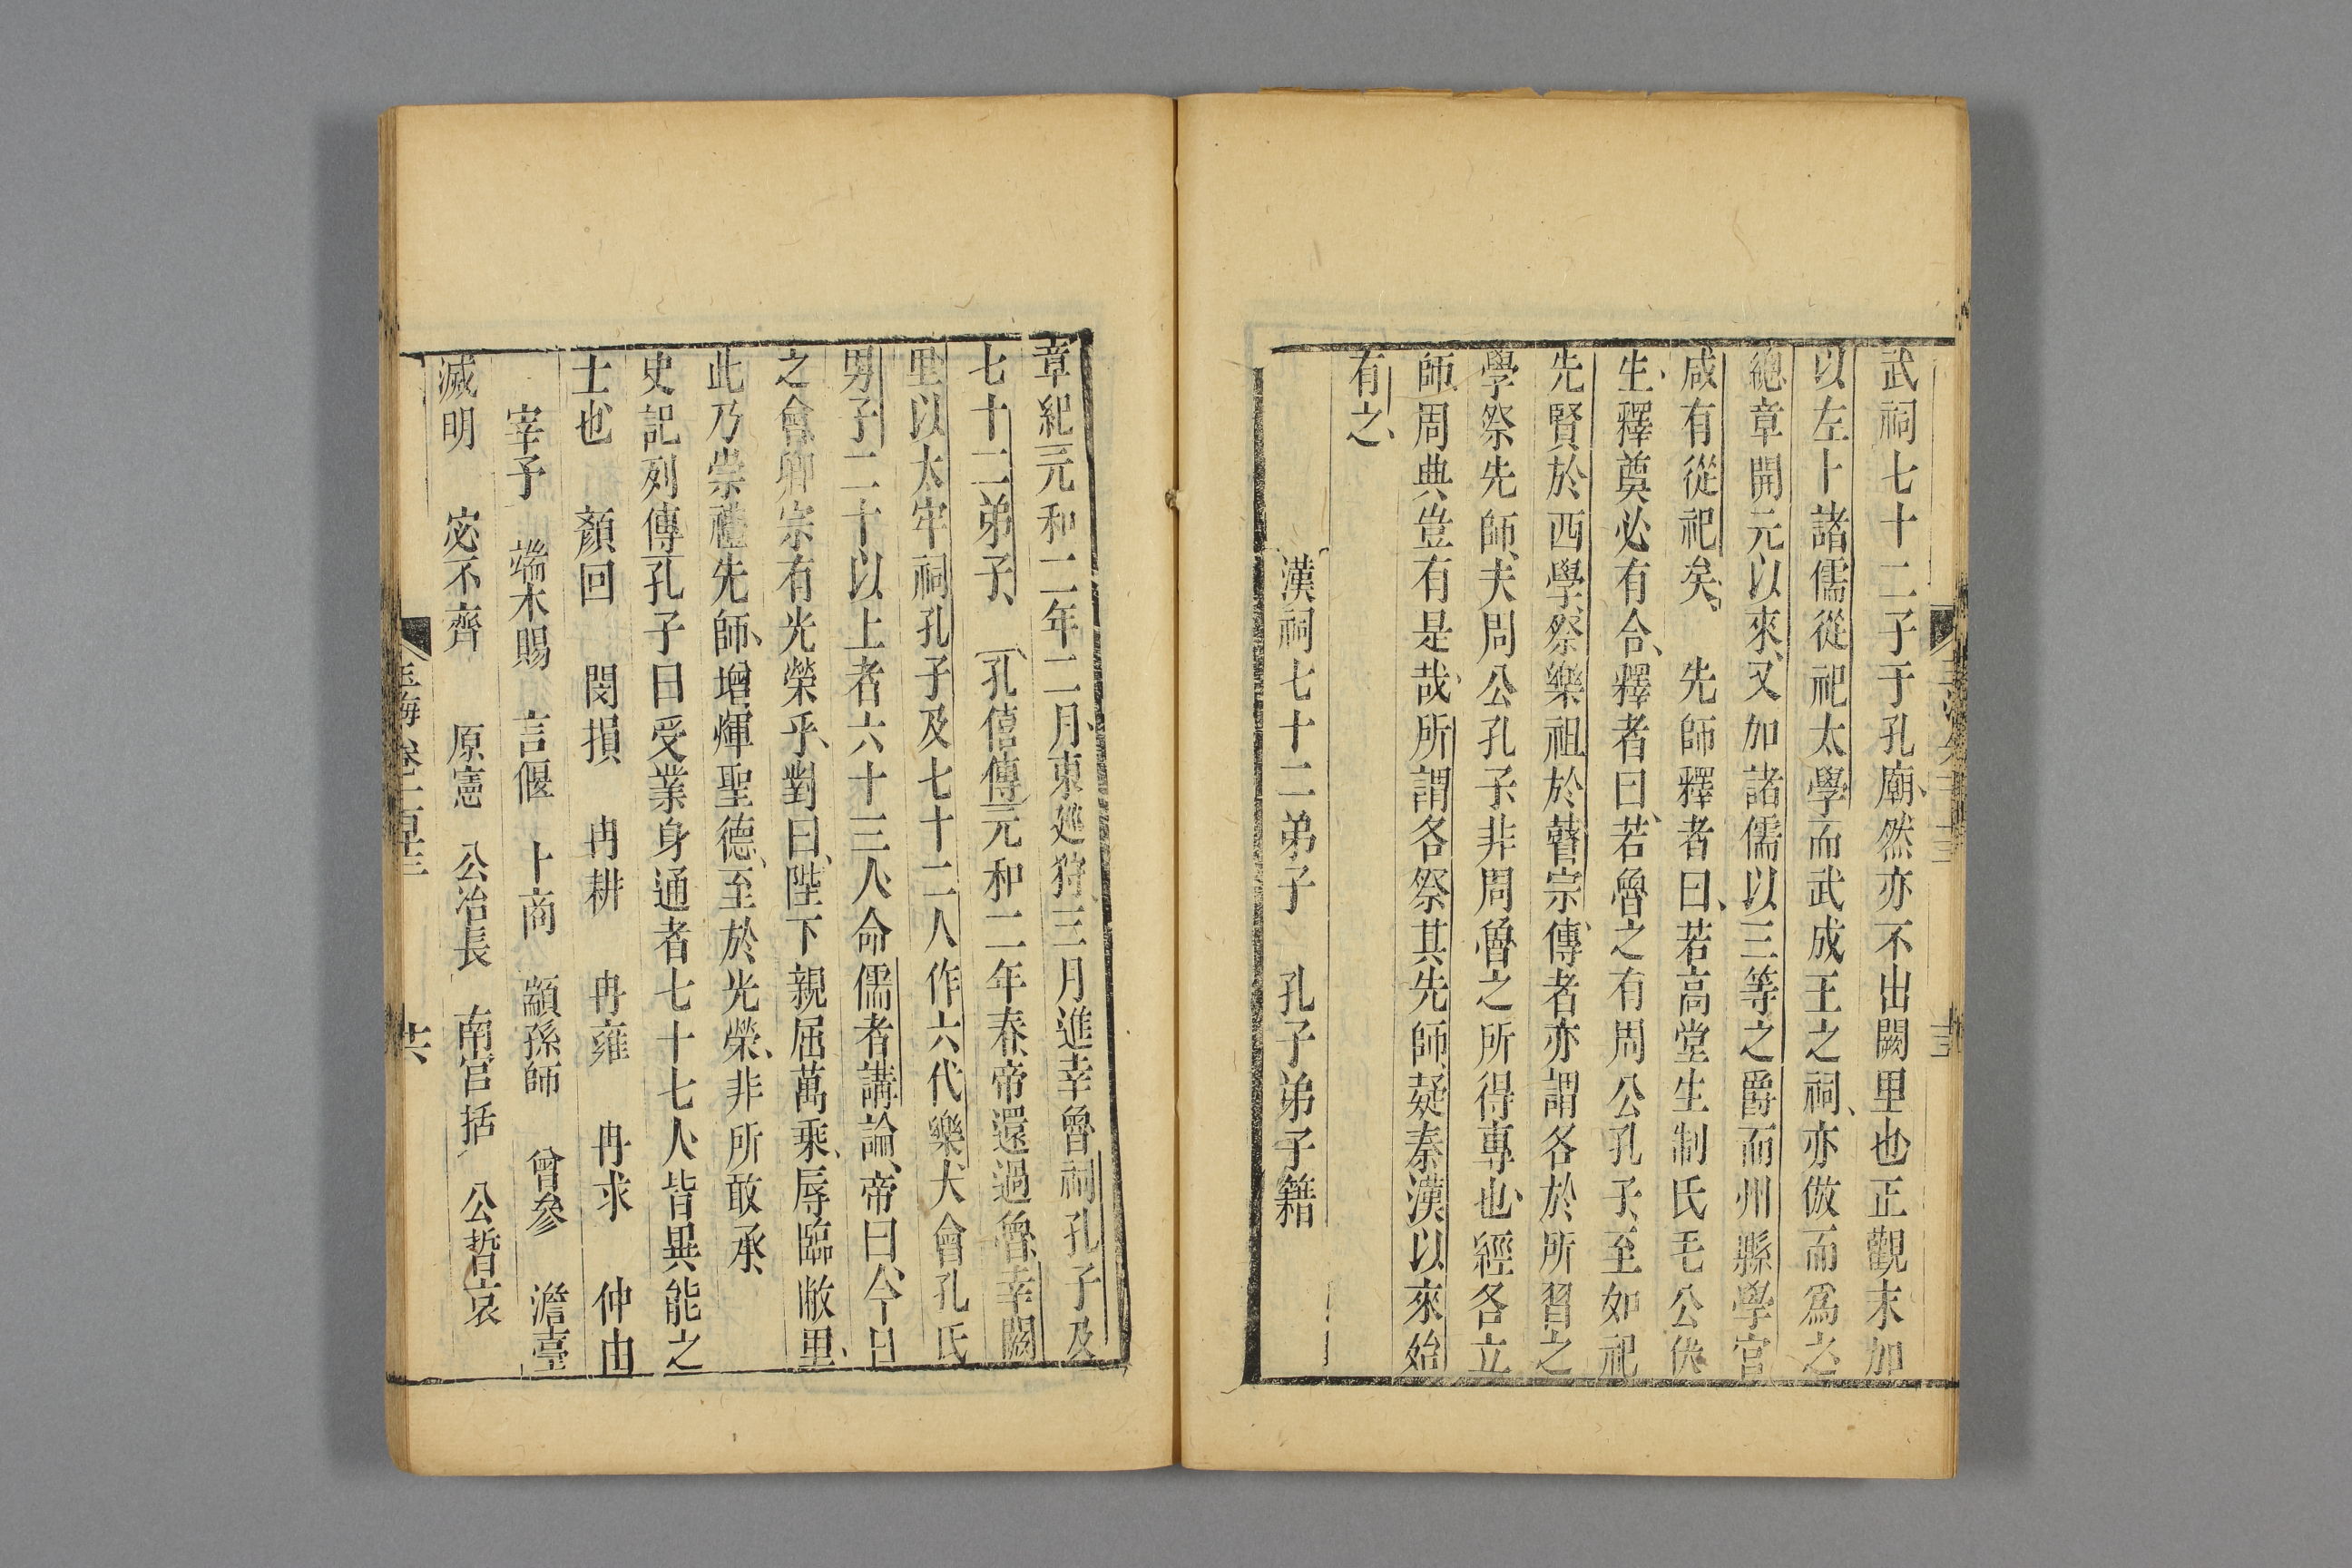 武祠七十二子于孔廟、然亦不出闕里也正觀末加
以左卜諸儒從祀太學而武成王之祠、亦倣而爲之
總章開元以來、又加諸儒以三等之爵而州縣學官
咸有從祀矣。先師釋者曰、若高堂生制氏毛公伏
生、釋奠必有合、釋者曰、若魯之有周公孔子、至如祀
先賢於西學、祭樂祖於瞽宗、傳者亦謂各於所習之
學祭先師、夫周公孔子非周魯之所得專也、經各立
師、周典豈有是哉、所謂各祭其先師、疑秦漢以來始
有之、
漢祠七十二弟子　孔子弟子籍
章紀元和二年二月、東廵狩、三月進幸魯祠孔子及
七十二弟子、孔僖傳元和二年春、帝還過魯、幸闕
里以太牢祠孔子及七十二人作六代樂大會孔氏
男子二十以上者六十三人、命儒者講論、帝曰、今日
之會、卿宗有光榮乎、對曰、陛下親屈萬乘、辱臨敝里、
此乃崇禮先師、增煇聖德、至於光榮、非所敢承、
史記列傳孔子曰受業身通者七十七人、皆異能之
士也　顏回　閔損　冉耕　冉雍　冉求　仲由
宰予　端木賜　言偃　卜商　顓孫師　曾參　澹臺
滅明　宓不齊　原憲　公冶長　南宫括　公晳哀
玉海卷一百十三
共